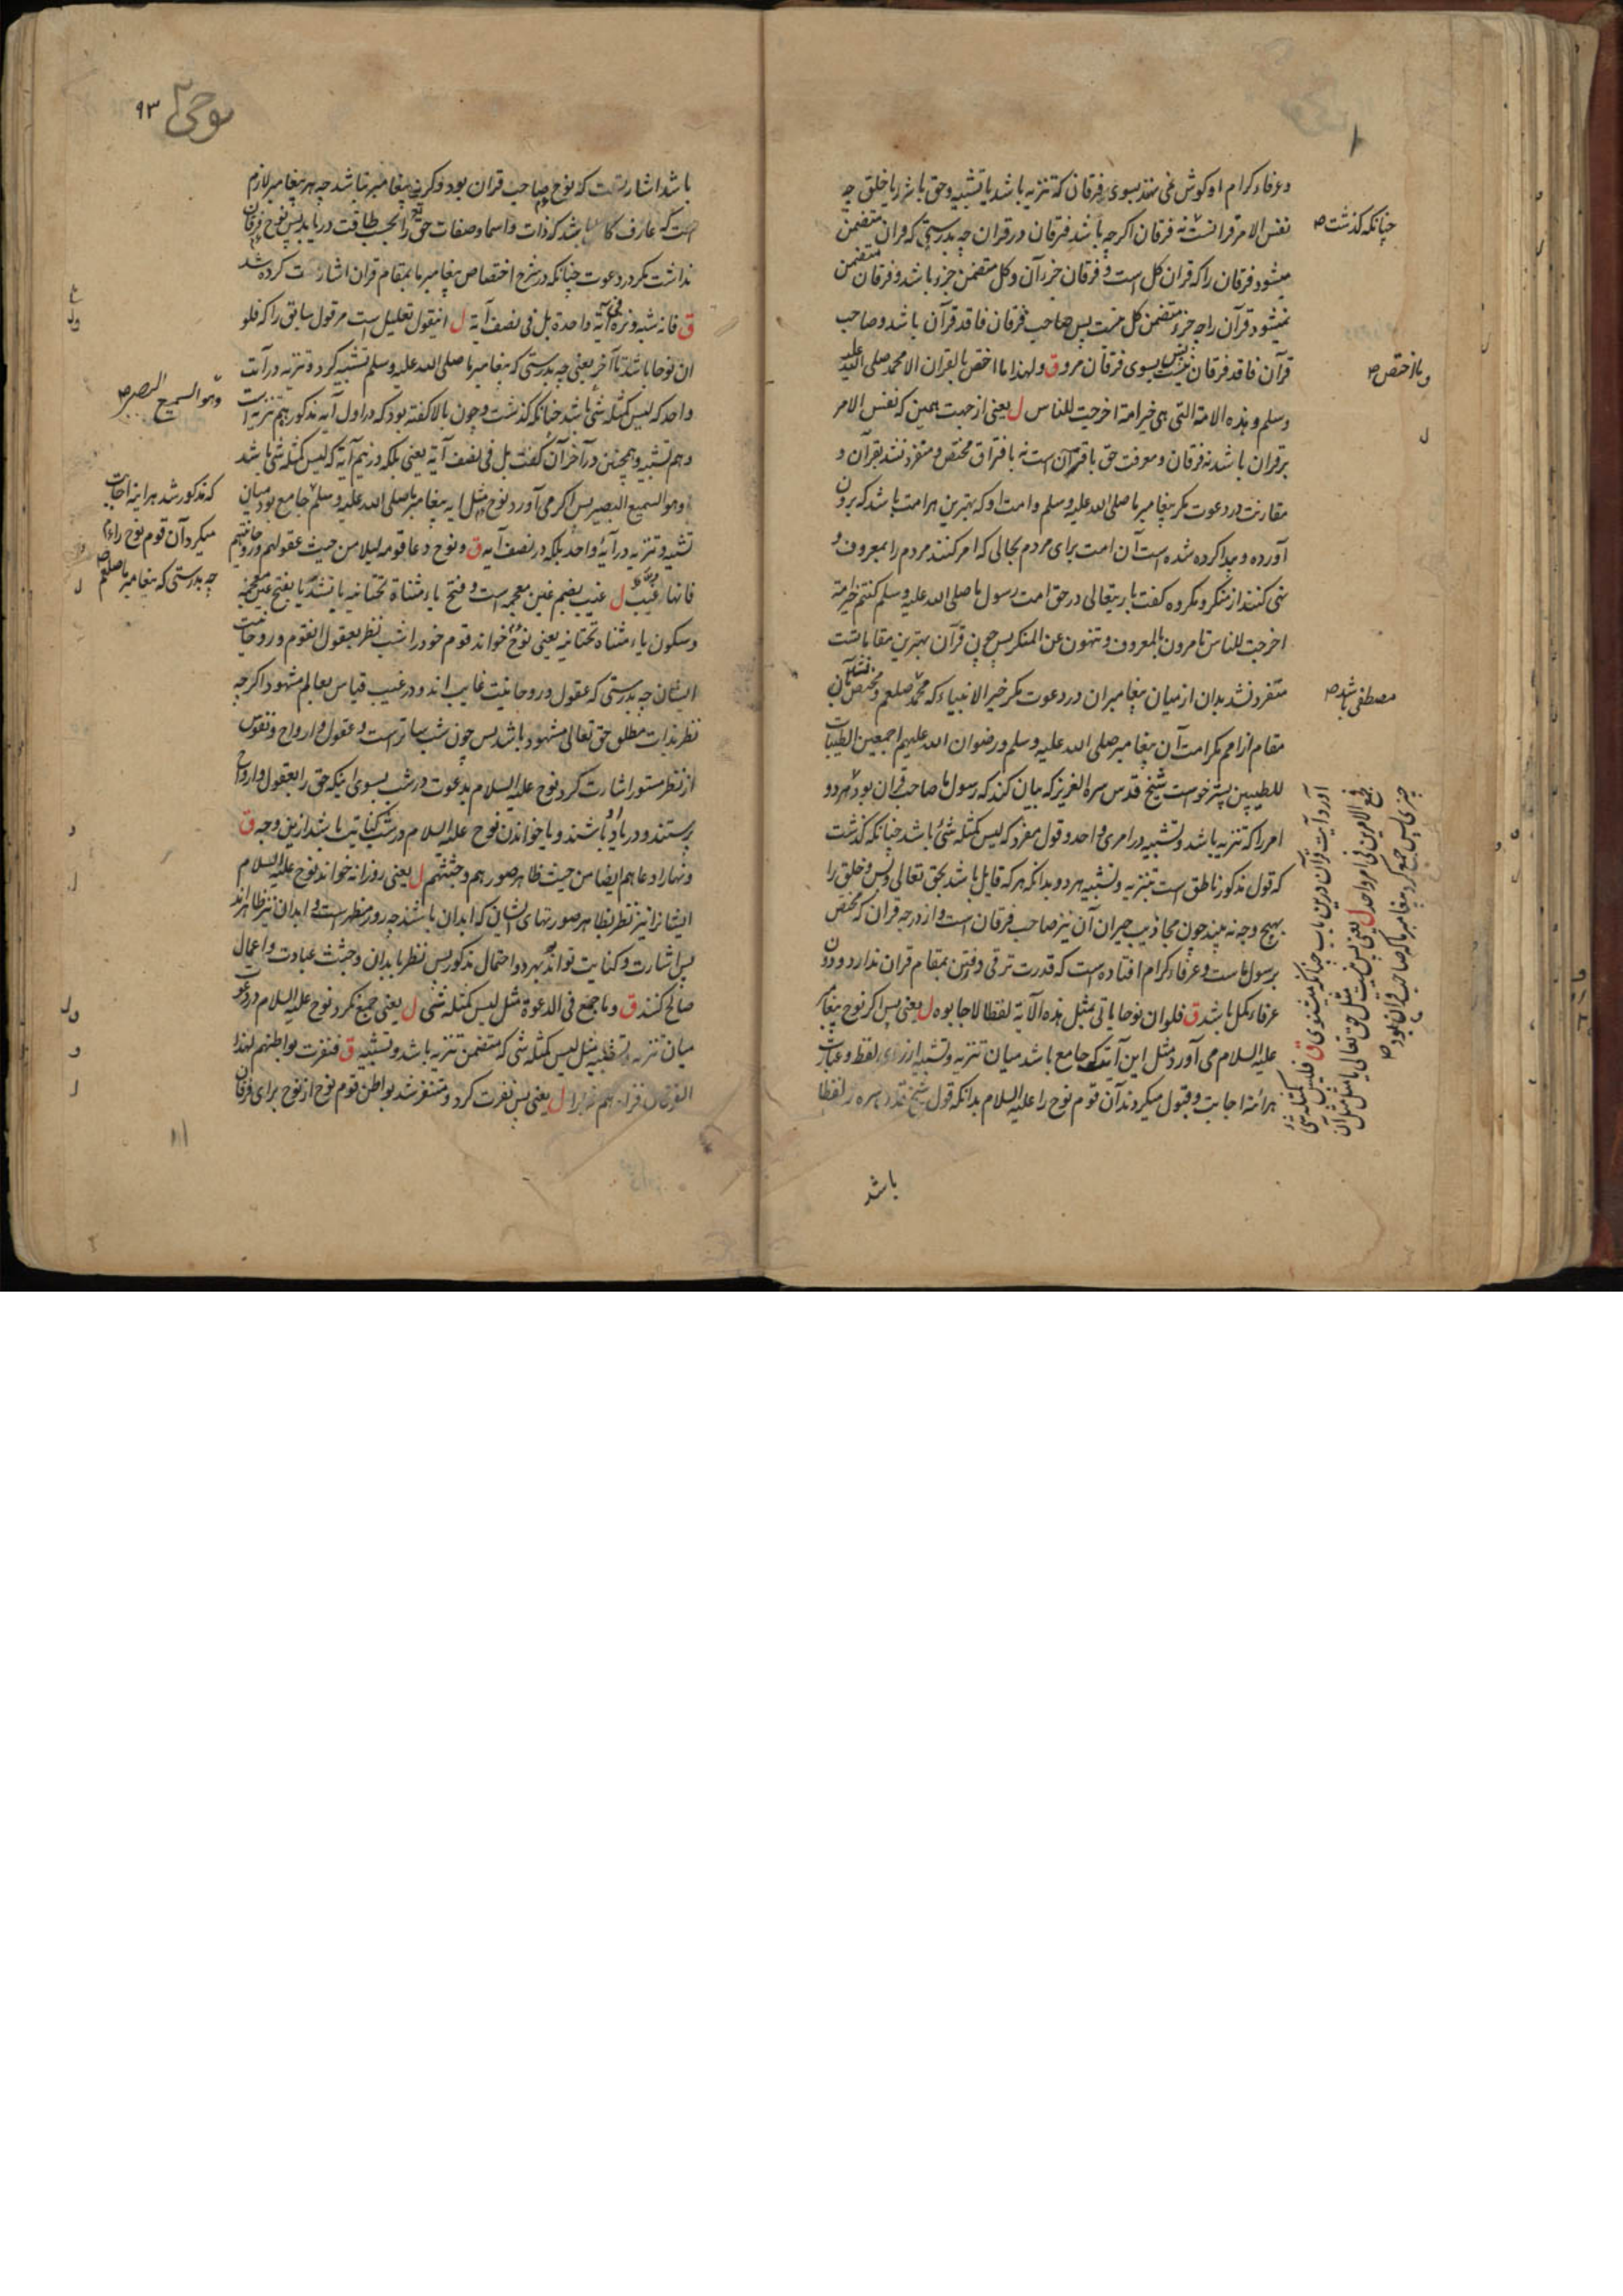 وعرفاء کرام او کوش نمی نهند بسوی فرقان که تنزیه باشد یا تشبیه وحق باشد یا خلق چه
نفس الامر قرآنست نه فرقان اکرچه باشد فرقان در قرآن چه بدرستی که قران متضمن
میشود فرقان را که قران کل است و فرقان جزء آن وکل متضمن جزو باشد و فرقان متضمن
نمیشود قرآن را چه جزء متضمن کل نیست پس صاحب فرقان فاقد قرآن باشد وصاحب
قرآن فاقد فرقان نیست پس بسوی فرقان مرو ق ولهذا ما اختص بالقران الا محمد صلی الله علیه
وسلم وهذه الامة التی هی خیر امة اخرجت للناس ل یعنی از جهت همین که نفس الامر
بر قران باشد نه فرقان ومعرفت حق باقرآن است نه بافتراق مختص ومتفرد نشد بقرآن و
مقارنت در دعوت مکر پیغامبر ما صلی الله علیه وسلم وامت او که بهترین هر امت باشد که برون
آورده و پیدا کرده شده است آن امت برای مردم بحالی که امر کنند مردم را بمعروف و
نهی کنند از منکر ومکروه کفت باریتعالی در حق امت رسول ما صلی الله علیه وسلم کنتم خیر امة
اخرجت للناس تامرون بالمعروف وتنهون عن المنکر پس چون قرآن بهترین مقاماتست
متفرد نشد بدان از میان پیغامبران در دعوت مکر خیر الانبیاء که محمد صلعم ومختص نشد بآن
مقام از امم مکر امت آن پیغامبر صلی الله علیه وسلم ورضوان الله علیهم اجمعین الطیبات
للطیبین پستر خواست شیخ قدس سره العزیز که بیان کند که رسول ما صاحب قران بود هر دو
امر را که تنزیه باشد وتشبیه در امری واحد وقول مفرد که لیس کمثله شئ باشد چنانکه کذشت
که قول مذکور ناطق است بتنزیه وتشبیه هر دو بدانکه هر که قایل باشد بحق تعالی وبس وخلق را
بهیچ وجه نه بیند چون مجاذیب حیران آن نیز صاحب فرقان است واز درجه قران که مختص
برسول ماست وعرفاء کرام افتاده است که قدرت ترقی ورفتن بمقام قران ندارد ودون
عرفاء کمل باشد ق فلو ان نوحا یاتی بمثل هذه الآیة لفظا لاجابوه ل یعنی پس اکر نوح پیغامبر
علیه السلام می آورد مثل این آیت که جامع باشد میان تنزیه وتشبیه از روی لفظ وعبارت
هر آئنه اجابت وقبول میکردند آن قوم نوح را علیه السلام بدانکه قول شیخ قدس سره لفظا
باشد
چنانکه کذشت ص
وما اختص ص
مصطفی باشد ص
آورد آیت قرآن درین باب چنانکه میشنوی ق فلیس کمثله شئ
فجمع الامرین فی امر واحد ل یعنی پس نیست مثل حق تعالی یا مثل مثل آن
چیزی پس جمع کرد پیغامبر ما که صاحب قران بود ص
نوحی ۹۳
باشد اشارتست که نوح صاحب قران بود وکرنه پیغامبر نباشد چه هر پیغامبر لازم
است که عارف کامل باشد که ذات واسما وصفات حق را بحسب طاقت دریابد پس نوح فرقان
نداشت مکر در دعوت چنانکه در شرح اختصاص پیغامبر ما بمقام قران اشارت کرده شد
ق فانه شبه ونزه فی آیة واحدة بل فی نصف آیة ل اینقول تعلیل است مر قول سابق را که فلو
ان نوحا باشد تا آخر یعنی چه بدرستی که پیغامبر ما صلی الله علیه وسلم تشبیه کرد وتنزیه در آیت
واحد که لیس کمثله شئ باشد چنانکه کذشت وچون بالا کفته بود که در اول آیه مذکور هم تنزیه است
وهم تشبیه وهمچنین در آخر آن کفت بل فی نصف آیة یعنی بلکه در نیم آیه که لیس کمثله شئ باشد
وهو السمیع البصیر پس اکر می آورد نوح مثل این پیغامبر ما صلی الله علیه وسلم جامع بود میان
تشبیه وتنزیه در آیه واحد بلکه در نصف آیه ق ونوح دعا قومه لیلا من حیث عقولهم وروحانیتهم
فانها غیب ل غیب بضم غین معجمه است وفتح یاء مثناة تحتانیه با تشدید یا بفتح غین معجمه
وسکون یاء مثناه تحتانیه یعنی نوح خواند قوم خود را شب نظر بعقول انقوم وروحانیت
ایشان چه بدرستی که عقول وروحانیت غایب اند ودر غیب قیاس بعالم مشهود اکرچه
نظر بذات مطلق حق تعالی مشهود باشد پس چون شب ساتر است وعقول وارواح ونفوس
از نظر مستور اشارت کرد نوح علیه السلام بدعوت در شب بسوی اینکه حق را بعقول وارواح
پرستند ودر یاد او باشند ویا خواندن نوح علیه السلام در شب کنایت باشد ازین وجه ق
ونهارا دعاهم ایضا من حیث ظاهر صورهم وجثثهم ل یعنی روزانه خواند نوح علیه السلام
ایشانرا نیز نظر بظاهر صورتهای ایشان که ابدان باشند چه روز مظهر است وابدان نیز ظاهرند
پس اشارت وکنایت تواند بهر دو احتمال مذکور پس نظر بابدان وجثث عبادت واعمال
صالح کنند ق وما جمع فی الدعوة مثل لیس کمثله شئ ل یعنی جمع نکرد نوح علیه السلام در دعوت
میان تنزیه وتشبیه مثل لیس کمثله شئ که متضمن تنزیه باشد وتشبیه ق فنفرت بواطنهم لهذا
الفرقان فزادهم فرارا ل یعنی پس نفرت کرد ومتنفر شد بواطن قوم نوح از نوح برای فرقان
وهو السمیع البصیر ص
که مذکور شد هر اینه اجابت
میکرد آن قوم نوح را
چه بدرستی که پیغامبر ما صلعم